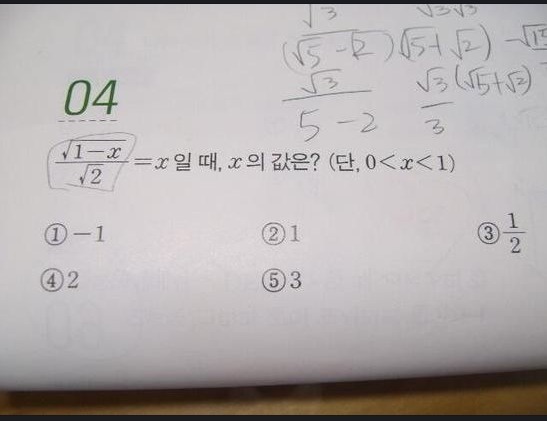 √3 √3√3
(√5-√2)(√5+√2) -√15
√3 √3(√5+√2)
5-2 3
04
√1-x/√2 = x일 때, x의 값은? (단, 0<x<1)
① -1 ② 1 ③ 1/2
④ 2 ⑤ 3